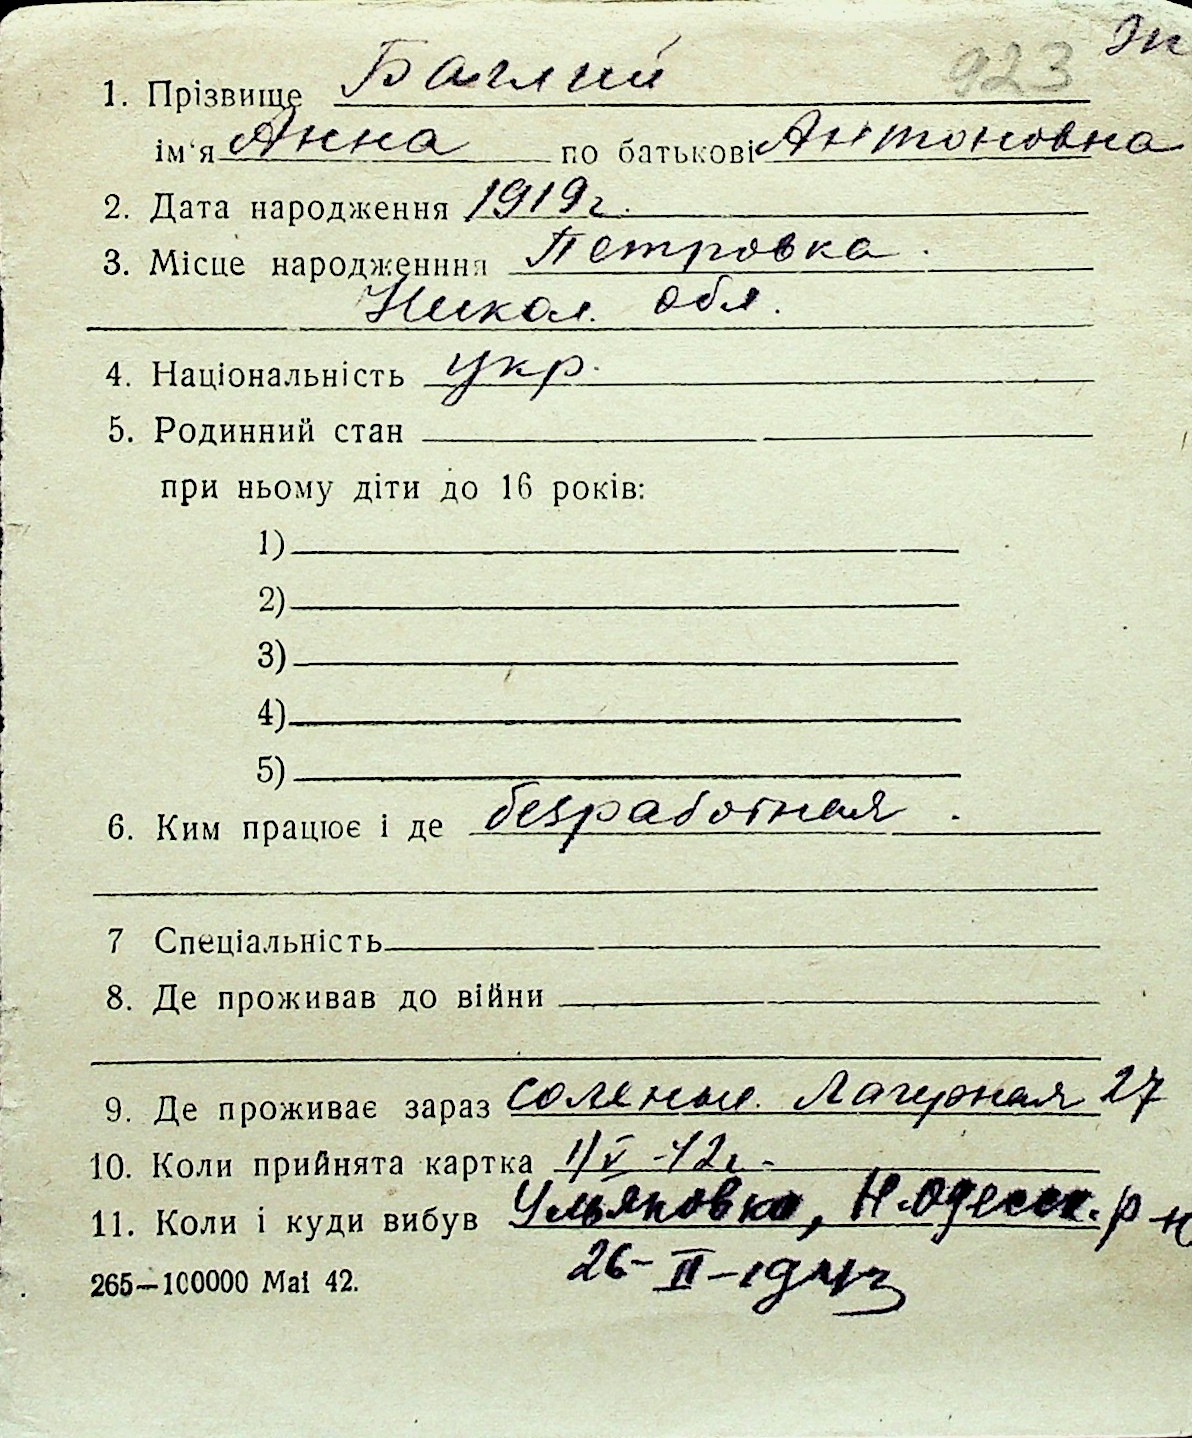 923
1. Прізвище Баглий
ім‘я Анна по батькові Антоновна
2. Дата народження 1919г.
3. Місце народженння Петровка.
Никол. обл.
4. Національність укр.
5. Родинний стан
при ньому діти до 16 років:
1)
2)
3)
4)
5)
6. Ким працює і де безработная.
7 Спеціальність
8. Де проживав до війни
9. Де проживає зараз Соляные. Лагерная 27
10. Коли прийнята картка 1/V-42г.
11. Коли і куди вибув Ульяновка, Н.Одесск. р-н
26-II-1943
265—100000 Mai 42.